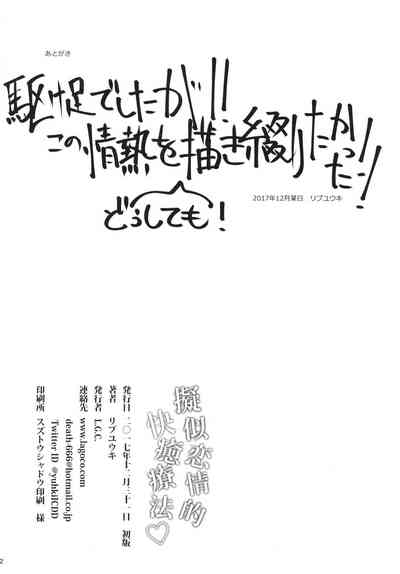 あとがき
駆け足でしたが!!
この情熱を描き綴りたかった!!
どぅしても!
2017年12月某日 リブユウキ
擬似恋情的
快癒療法♡
発行日 二〇一七年十二月三十一日 初版
著者 リブユウキ
発行者 L.G.C.
連絡先
www.lagoco.com
death-666@hotmail.co.jp
Twitter ID @yuhkiJCDD
印刷所 スズトウシャドウ印刷 様
2